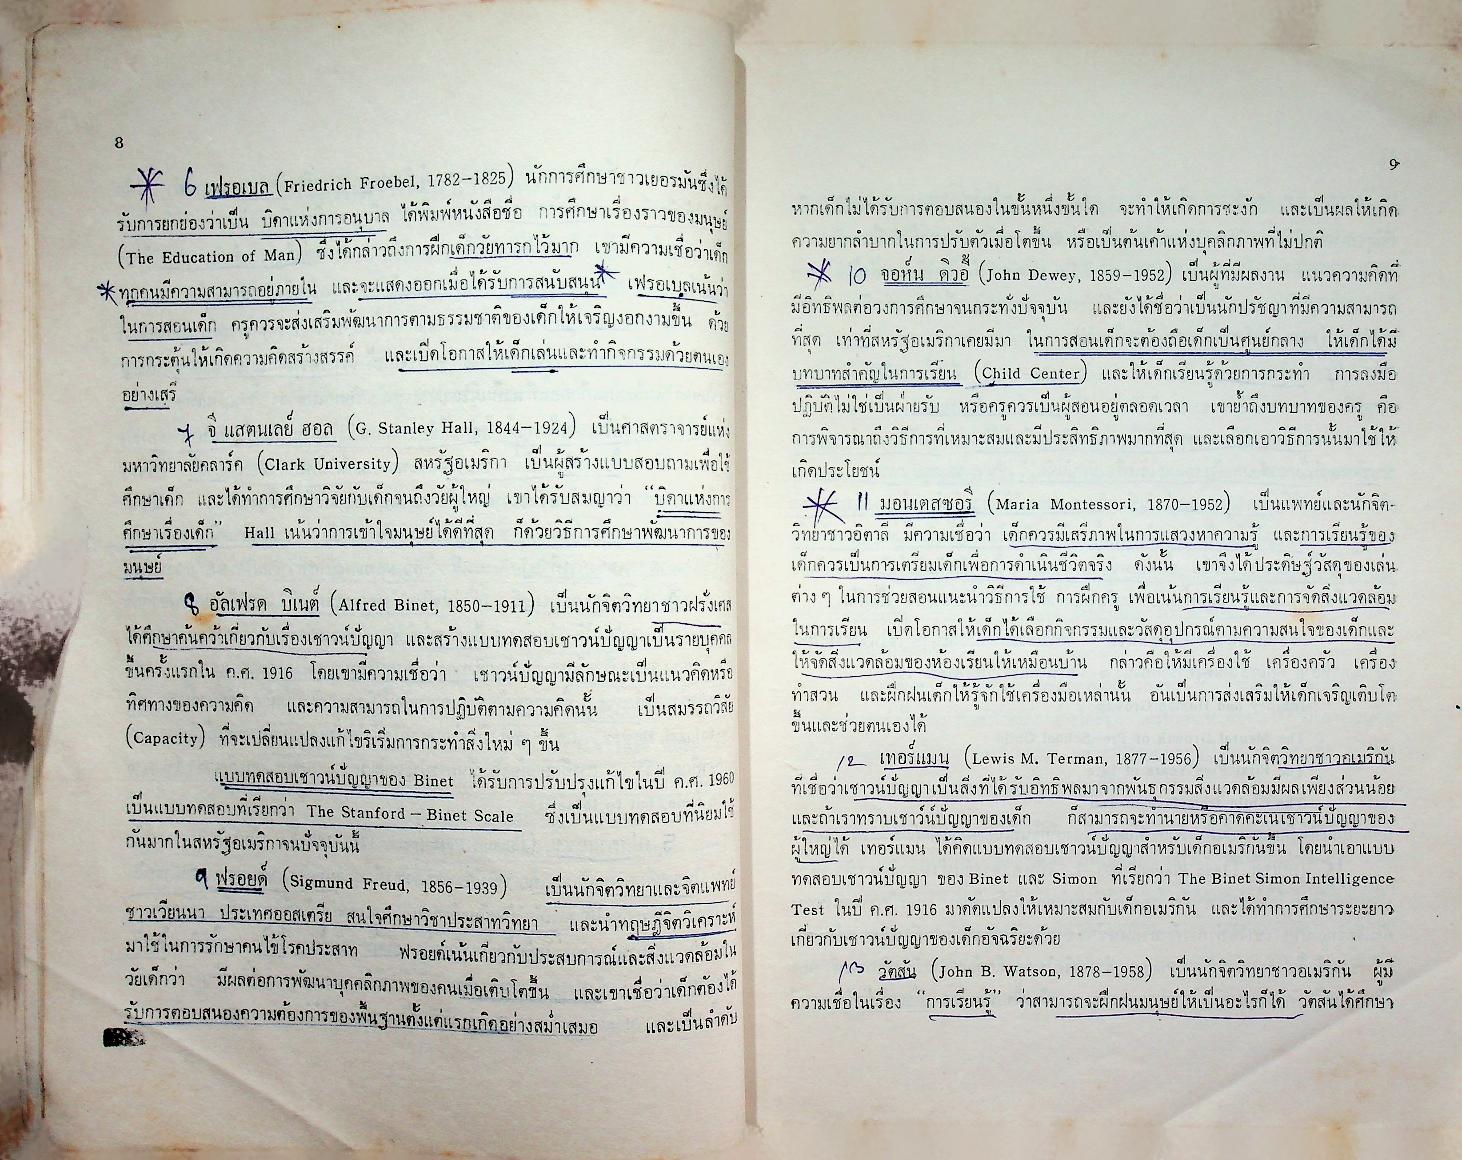 8
* 6 เฟรอเบล (Friedrich Froebel, 1782–1825) นักการศึกษาชาวเยอรมันซึ่งได้
รับการยกย่องว่าเป็น บิดาแห่งการอนุบาล ได้พิมพ์หนังสือชื่อ การศึกษาเรื่องราวของมนุษย์
(The Education of Man) ซึ่งได้กล่าวถึงการฝึกเด็กวัยทารกไว้มาก เขามีความเชื่อว่าเด็ก
* ทุกคนมีความสามารถอยู่ภายใน และจะแสดงออกเมื่อได้รับการสนับสนุน * เฟรอเบลเน้นว่า
ในการสอนเด็ก ครูควรจะส่งเสริมพัฒนาการตามธรรมชาติของเด็กให้เจริญงอกงามขึ้น ด้วย
การกระตุ้นให้เกิดความคิดสร้างสรรค์ และเปิดโอกาสให้เด็กเล่นและทำกิจกรรมด้วยตนเอง
อย่างเสรี
7 จี แสตนเลย์ ฮอล (G. Stanley Hall, 1844–1924) เป็นศาสตราจารย์แห่ง
มหาวิทยาลัยคลาร์ค (Clark University) สหรัฐอเมริกา เป็นผู้สร้างแบบสอบถามเพื่อใช้
ศึกษาเด็ก และได้ทำการศึกษาวิจัยกับเด็กจนถึงวัยผู้ใหญ่ เขาได้รับสมญาว่า “บิดาแห่งการ
ศึกษาเรื่องเด็ก” Hall เน้นว่าการเข้าใจมนุษย์ได้ดีที่สุด ก็ด้วยวิธีการศึกษาพัฒนาการของ
มนุษย์
8 อัลเฟรด บิเนต์ (Alfred Binet, 1850–1911) เป็นนักจิตวิทยาชาวฝรั่งเศส
ได้ศึกษาค้นคว้าเกี่ยวกับเรื่องเชาวน์ปัญญา และสร้างแบบทดสอบเชาวน์ปัญญาเป็นรายบุคคล
ขึ้นครั้งแรกใน ค.ศ. 1916 โดยเขามีความเชื่อว่า เชาวน์ปัญญามีลักษณะเป็นแนวคิดหรือ
ทิศทางของความคิด และความสามารถในการปฏิบัติตามความคิดนั้น เป็นสมรรถวิสัย
(Capacity) ที่จะเปลี่ยนแปลงแก้ไขริเริ่มการกระทำสิ่งใหม่ ๆ ขึ้น
แบบทดสอบเชาวน์ปัญญาของ Binet ได้รับการปรับปรุงแก้ไขในปี ค.ศ. 1960
เป็นแบบทดสอบที่เรียกว่า The Stanford – Binet Scale ซึ่งเป็นแบบทดสอบที่นิยมใช้
กันมากในสหรัฐอเมริกาจนปัจจุบันนี้
9 ฟรอยด์ (Sigmund Freud, 1856–1939) เป็นนักจิตวิทยาและจิตแพทย์
ชาวเวียนนา ประเทศออสเตรีย สนใจศึกษาวิชาประสาทวิทยา และนำทฤษฎีจิตวิเคราะห์
มาใช้ในการรักษาคนไข้โรคประสาท ฟรอยด์เน้นเกี่ยวกับประสบการณ์และสิ่งแวดล้อมใน
วัยเด็กว่า มีผลต่อการพัฒนาบุคคลิกภาพของคนเมื่อเติบโตขึ้น และเขาเชื่อว่าเด็กต้องได้
รับการตอบสนองความต้องการของพื้นฐานตั้งแต่แรกเกิดอย่างสม่ำเสมอ และเป็นลำดับ
9
หากเด็กไม่ได้รับการตอบสนองในขั้นหนึ่งขั้นใด จะทำให้เกิดการชะงัก และเป็นผลให้เกิด
ความยากลำบากในการปรับตัวเมื่อโตขึ้น หรือเป็นต้นเค้าแห่งบุคลิกภาพที่ไม่ปกติ
* 10 จอห์น ดิวอี้ (John Dewey, 1859–1952) เป็นผู้ที่มีผลงาน แนวความคิดที่
มีอิทธิพลต่อวงการศึกษาจนกระทั่งปัจจุบัน และยังได้ชื่อว่าเป็นนักปรัชญาที่มีความสามารถ
ที่สุด เท่าที่สหรัฐอเมริกาเคยมีมา ในการสอนเด็กจะต้องถือเด็กเป็นศูนย์กลาง ให้เด็กได้มี
บทบาทสำคัญในการเรียน (Child Center) และให้เด็กเรียนรู้ด้วยการกระทำ การลงมือ
ปฏิบัติไม่ใช่เป็นฝ่ายรับ หรือครูควรเป็นผู้สอนอยู่ตลอดเวลา เขาย้ำถึงบทบาทของครู คือ
การพิจารณาถึงวิธีการที่เหมาะสมและมีประสิทธิภาพมากที่สุด และเลือกเอาวิธีการนั้นมาใช้ให้
เกิดประโยชน์
* 11 มอนเตสซอรี่ (Maria Montessori, 1870–1952) เป็นแพทย์และนักจิต-
วิทยาชาวอิตาลี มีความเชื่อว่า เด็กควรมีเสรีภาพในการแสวงหาความรู้ และการเรียนรู้ของ
เด็กควรเป็นการเตรียมเด็กเพื่อการดำเนินชีวิตจริง ดังนั้น เขาจึงได้ประดิษฐ์วัสดุของเล่น
ต่าง ๆ ในการช่วยสอนแนะนำวิธีการใช้ การฝึกครู เพื่อเน้นการเรียนรู้และการจัดสิ่งแวดล้อม
ในการเรียน เปิดโอกาสให้เด็กได้เลือกกิจกรรมและวัสดุอุปกรณ์ตามความสนใจของเด็กและ
ให้จัดสิ่งแวดล้อมของห้องเรียนให้เหมือนบ้าน กล่าวคือให้มีเครื่องใช้ เครื่องครัว เครื่อง
ทำสวน และฝึกฝนเด็กให้รู้จักใช้เครื่องมือเหล่านั้น อันเป็นการส่งเสริมให้เด็กเจริญเติบโต
ขึ้นและช่วยตนเองได้
12 เทอร์แมน (Lewis M. Terman, 1877–1956) เป็นนักจิตวิทยาชาวอเมริกัน
ที่เชื่อว่าเชาวน์ปัญญาเป็นสิ่งที่ได้รับอิทธิพลมาจากพันธุกรรมสิ่งแวดล้อมมีผลเพียงส่วนน้อย
และถ้าเราทราบเชาวน์ปัญญาของเด็ก ก็สามารถจะทำนายหรือคาดคะเนเชาวน์ปัญญาของ
ผู้ใหญ่ได้ เทอร์แมน ได้คิดแบบทดสอบเชาวน์ปัญญาสำหรับเด็กอเมริกันขึ้น โดยนำเอาแบบ
ทดสอบเชาวน์ปัญญา ของ Binet และ Simon ที่เรียกว่า The Binet Simon Intelligence
Test ในปี ค.ศ. 1916 มาดัดแปลงให้เหมาะสมกับเด็กอเมริกัน และได้ทำการศึกษาระยะยาว
เกี่ยวกับเชาวน์ปัญญาของเด็กอัจฉริยะด้วย
13 วัตสัน (John B. Watson, 1878–1958) เป็นนักจิตวิทยาชาวอเมริกัน ผู้มี
ความเชื่อในเรื่อง “การเรียนรู้” ว่าสามารถจะฝึกฝนมนุษย์ให้เป็นอะไรก็ได้ วัตสันได้ศึกษา